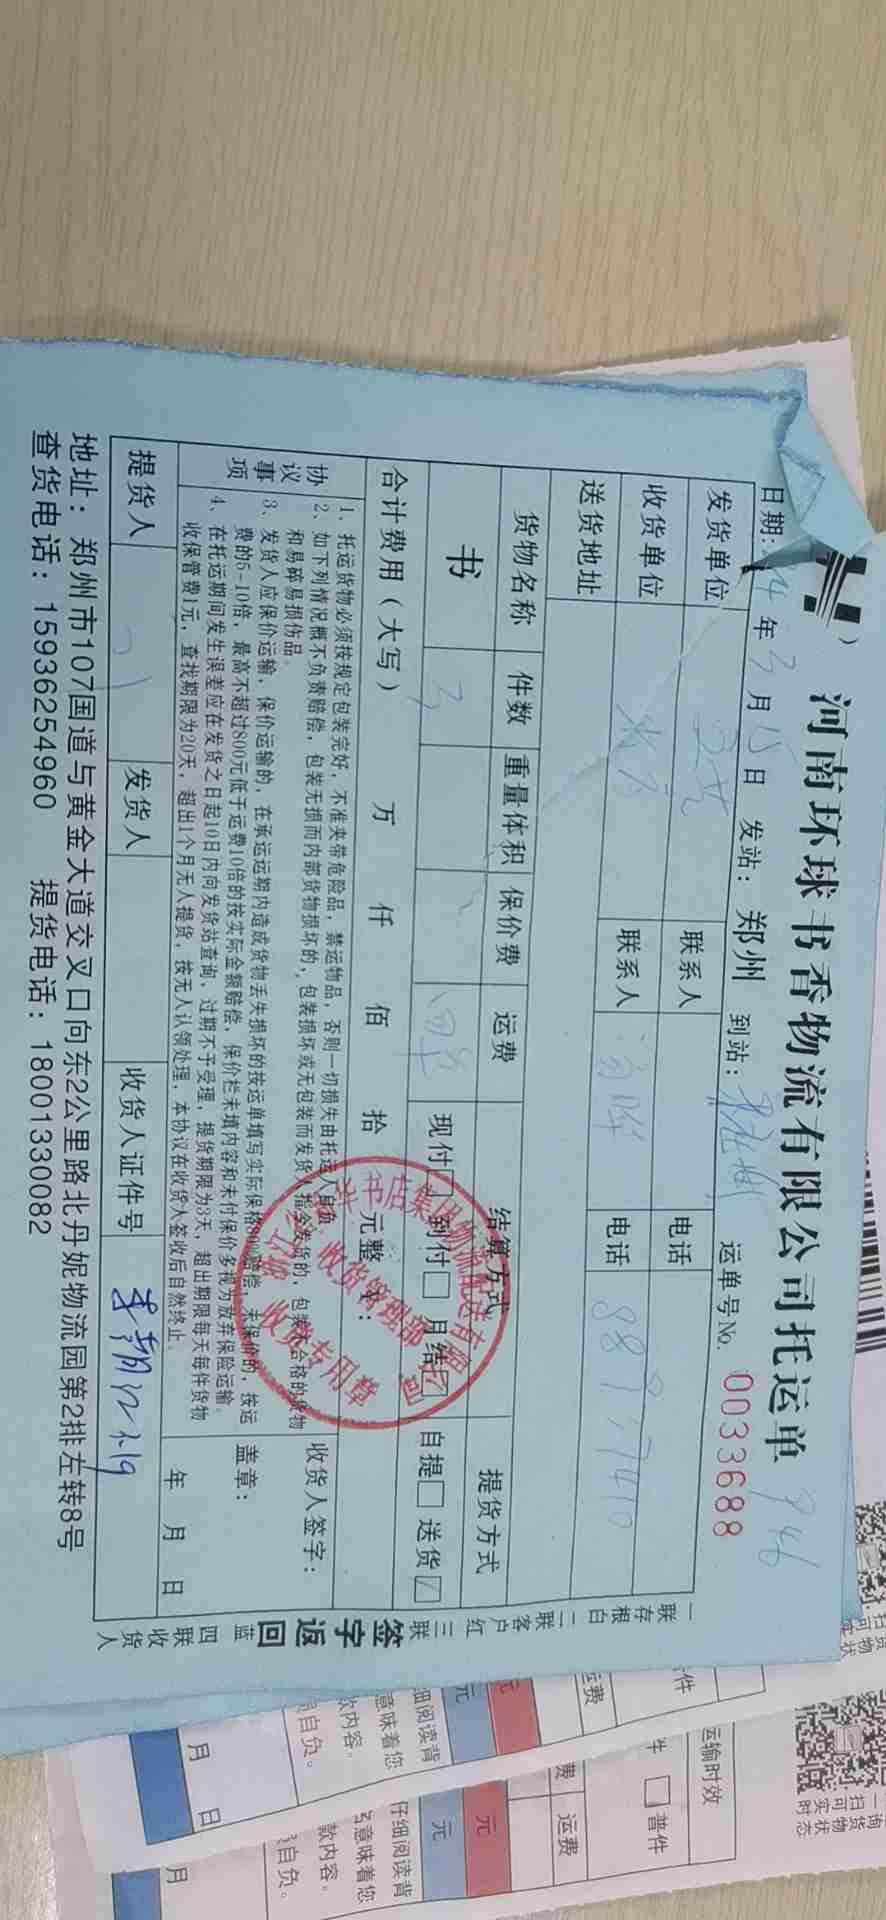 河南环球书香物流有限公司托运单
日期: 4年3月15日 发站: 郑州 到站: 运单号№. 0033688
发货单位 联系人 电话
收货单位 联系人 电话
送货地址
货物名称 件数 重量体积 保价费 运费 结算方式 提货方式
书 3 回单 现付□ 到付□ 月结☑ 自提□ 送货☑
合计费用（大写） 万 仟 佰 拾 元整 ￥:
协议事项
1、托运货物必须按规定包装完好，不准夹带危险品，禁运物品，否则一切损失由托运人自负。
2、如下列情况概不负责赔偿，包装无损而内部货物损坏的，包装损坏或无包装而发货人指令发货的，包装不合格的货物
和易碎易损伤品。
3、发货人应保价运输，保价运输的，在承运运期内造成货物丢失损坏的按运单填写实际保格80%赔偿，未保价的，按运
费的5-10倍，最高不超过800元低于运费10倍的按实际金额赔偿，保价栏未填内容和未付保价多视为放弃保险运输。
4、在托运期间发生误差应在发货之日起10日内向发货站查询，过期不予受理，提货期限为3天，超出期限每天每件货物
收保管费1元，查找期限为20天，超出1个月无人提货，按无人认领处理，本协议在收货人签收后自然终止。
收货人签字:
盖章:
年 月 日
提货人 发货人 收货人证件号
地址: 郑州市107国道与黄金大道交叉口向东2公里路北丹妮物流园第2排左转8号
查货电话: 15936254960 提货电话: 18001330082
一联存根白 二联客户红 三联签字返回蓝 四联收货人
浙江省新华书店集团物流配送有限公司
收货管理部
收货专用章
运输时效
件 □ 普件
费 运费
元 元
仔细阅读背
意味着您
款内容。
自负。
月 日
月